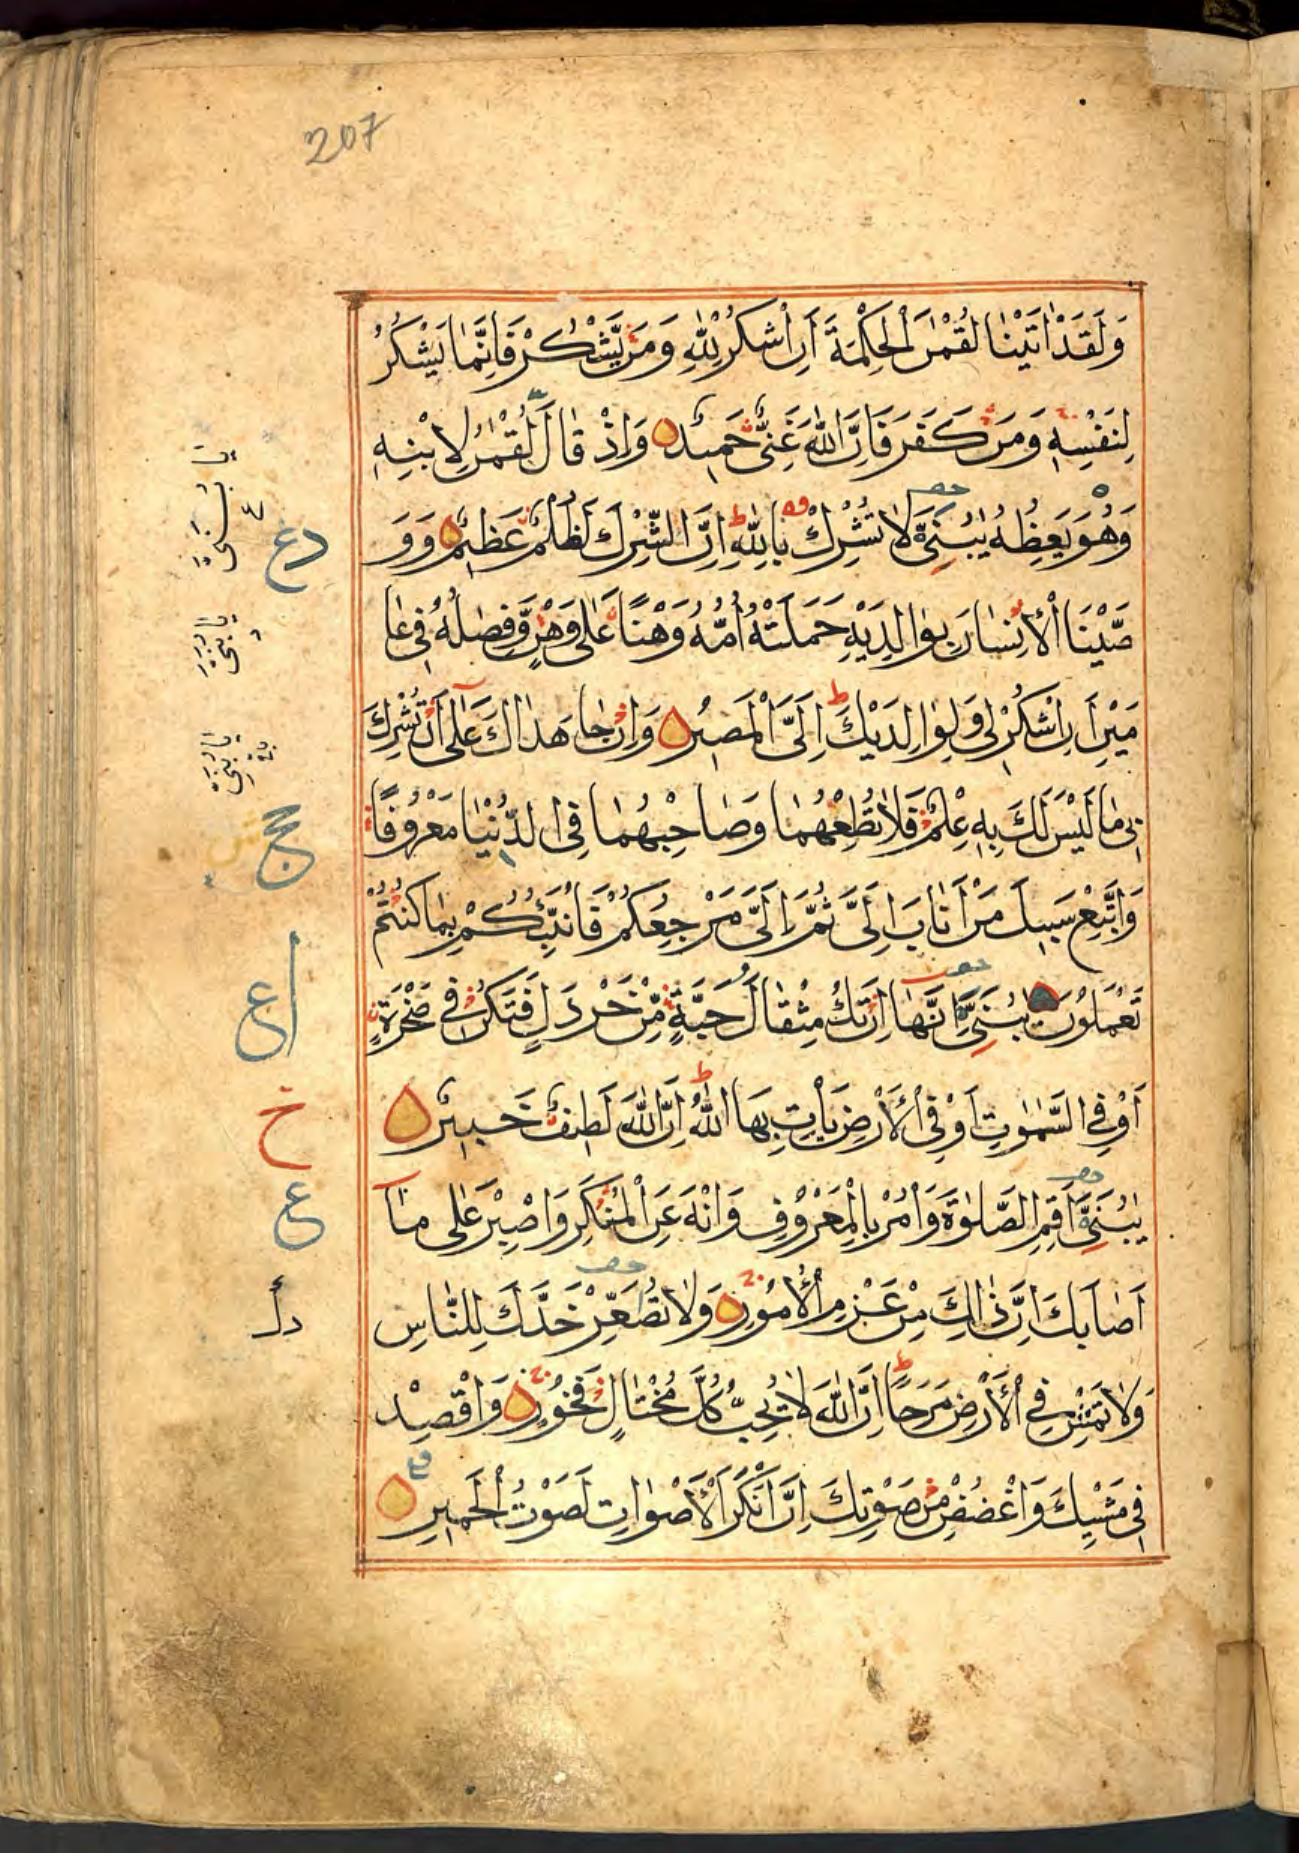 207
وَلَقَدْ اٰتَيْنَا لُقْمٰنَ الْحِكْمَةَ اَنِ اشْكُرْ لِلّٰهِ وَمَنْ يَّشْكُرْ فَاِنَّمَا يَشْكُرُ
لِنَفْسِهٖ وَمَنْ كَفَرَ فَاِنَّ اللّٰهَ غَنِيٌّ حَمِيْدٌ وَاِذْ قَالَ لُقْمٰنُ لِابْنِهٖ
وَهُوَ يَعِظُهٗ يٰبُنَيَّ لَا تُشْرِكْ بِاللّٰهِ اِنَّ الشِّرْكَ لَظُلْمٌ عَظِيْمٌ وَوَ
صَّيْنَا الْاِنْسَانَ بِوَالِدَيْهِ حَمَلَتْهُ اُمُّهٗ وَهْنًا عَلٰى وَهْنٍ وَّفِصٰلُهٗ فِيْ عَا
مَيْنِ اَنِ اشْكُرْ لِيْ وَلِوَالِدَيْكَ اِلَيَّ الْمَصِيْرُ وَاِنْ جَاهَدَاكَ عَلٰى اَنْ تُشْرِكَ
بِيْ مَا لَيْسَ لَكَ بِهٖ عِلْمٌ فَلَا تُطِعْهُمَا وَصَاحِبْهُمَا فِي الدُّنْيَا مَعْرُوْفًا
وَاتَّبِعْ سَبِيْلَ مَنْ اَنَابَ اِلَيَّ ثُمَّ اِلَيَّ مَرْجِعُكُمْ فَاُنَبِّئُكُمْ بِمَا كُنْتُمْ
تَعْمَلُوْنَ يٰبُنَيَّ اِنَّهَا اِنْ تَكُ مِثْقَالَ حَبَّةٍ مِّنْ خَرْدَلٍ فَتَكُنْ فِيْ صَخْرَةٍ
اَوْ فِي السَّمٰوٰتِ اَوْ فِي الْاَرْضِ يَاْتِ بِهَا اللّٰهُ اِنَّ اللّٰهَ لَطِيْفٌ خَبِيْرٌ
يٰبُنَيَّ اَقِمِ الصَّلٰوةَ وَاْمُرْ بِالْمَعْرُوْفِ وَانْهَ عَنِ الْمُنْكَرِ وَاصْبِرْ عَلٰى مَآ
اَصَابَكَ اِنَّ ذٰلِكَ مِنْ عَزْمِ الْاُمُوْرِ وَلَا تُصَعِّرْ خَدَّكَ لِلنَّاسِ
وَلَا تَمْشِ فِي الْاَرْضِ مَرَحًا اِنَّ اللّٰهَ لَا يُحِبُّ كُلَّ مُخْتَالٍ فَخُوْرٍ وَاقْصِدْ
فِيْ مَشْيِكَ وَاغْضُضْ مِنْ صَوْتِكَ اِنَّ اَنْكَرَ الْاَصْوَاتِ لَصَوْتُ الْحَمِيْرِ